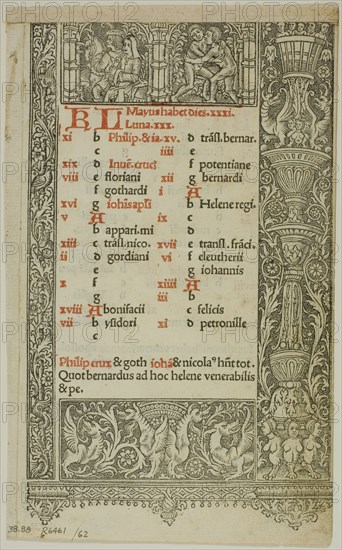 KL Mayus habet dies .xxxi.
Luna .xxx.
xi b Philip. & ia. xv. d trãsl. bernar.
c iiii e
xix d Inuẽ. cruci f potentiane
viii e floriani xii g bernardi
f gothardi i A
xvi g iohãis apľi b Helene regi.
v A ix c
b appari. mi d
xiii c trãsl. nico. xvii e transl. frãci.
ii d gordiani vi f eleutherii
e g iohannis
x f xiiii A
g iii b
xviii A bonifacii c felicis
vii b ysidori xi d petronille
Philip crux & goth iohã & nicolaꝰ hñt tot.
Quot bernardus ad hoc helene venerabilis
& pe.
38.98 R6461 /62
PHOTO